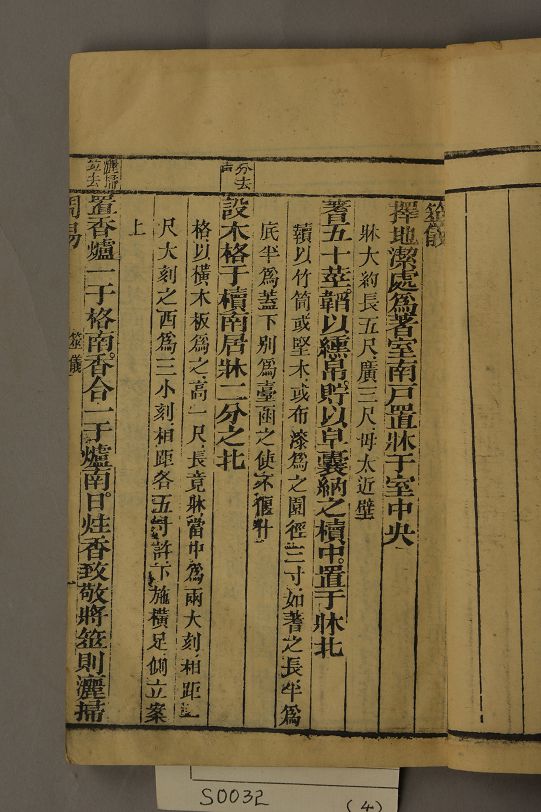 筮儀
擇地潔處為蓍室南戶置牀于室中央
牀大約長五尺廣三尺毋太近壁
蓍五十莖韜以纁帛貯以皁囊納之櫝中置于牀北
櫝以竹筒或堅木或布漆為之圓徑三寸如蓍之長半為
底半為蓋下別為臺函之使不偃仆
設木格于櫝南居牀二分之北
格以橫木板為之高一尺長竟牀當中為兩大刻相距一
尺大刻之西為三小刻相距各五寸許下施橫足側立案
上
置香爐一于格南香合一于爐南日炷香致敬將筮則灑掃
分去
灑掃
並去
周易
筮儀
S0032
(4)